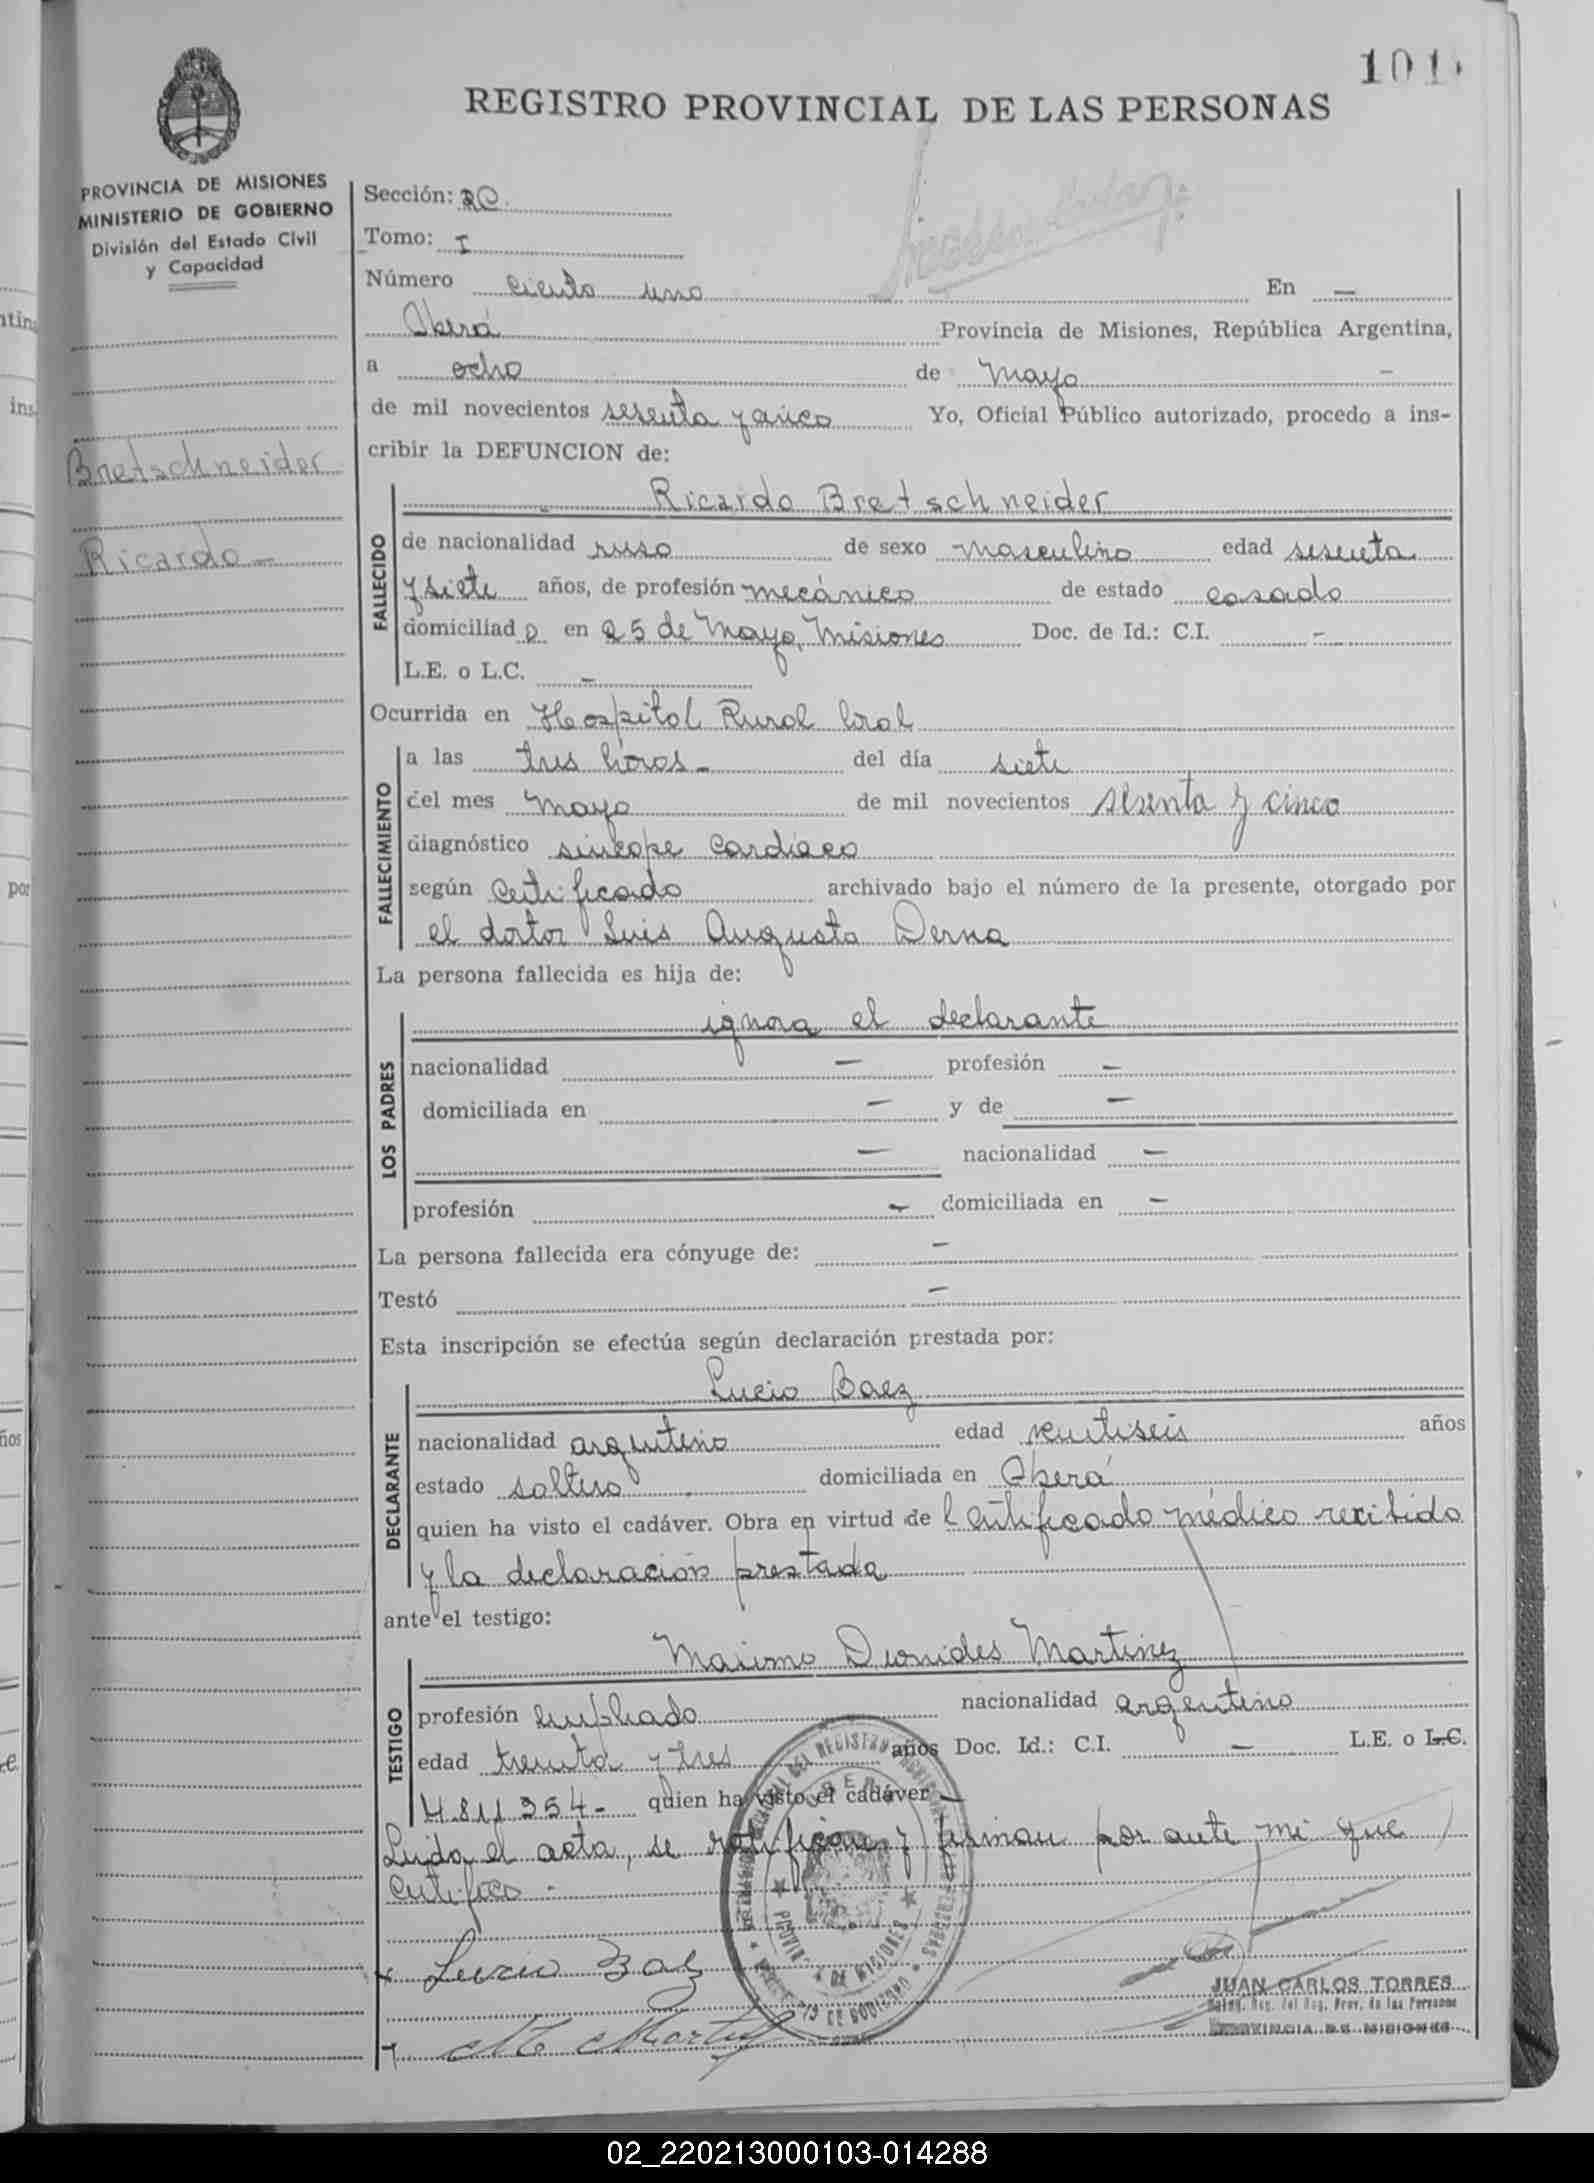 101
REGISTRO PROVINCIAL DE LAS PERSONAS
PROVINCIA DE MISIONES
MINISTERIO DE GOBIERNO
División del Estado Civil
y Capacidad
Bretschneider
Ricardo -
Sección:
Tomo: I
Número ciento uno En -
Oberá Provincia de Misiones, República Argentina,
a ocho de Mayo -
de mil novecientos sesenta y cinco Yo, Oficial Público autorizado, procedo a ins-
cribir la DEFUNCION de:
FALLECIDO
Ricardo Bretschneider
de nacionalidad ruso de sexo masculino edad sesenta
y siete años, de profesión mecánico de estado casado
domiciliado en 25 de Mayo, Misiones Doc. de Id.: C.I. -
L.E. o L.C. -
Ocurrida en Hospital Rural local
FALLECIMIENTO
a las tres horas - del día siete
del mes mayo de mil novecientos sesenta y cinco
diagnóstico síncope cardíaco
según certificado archivado bajo el número de la presente, otorgado por
el doctor Luis Augusto Derna
La persona fallecida es hija de:
LOS PADRES
ignora el declarante
nacionalidad - profesión -
domiciliada en - y de -
- nacionalidad -
profesión - domiciliada en -
La persona fallecida era cónyuge de: -
Testó -
Esta inscripción se efectúa según declaración prestada por:
DECLARANTE
Lucio Baez
nacionalidad argentino edad veintiseis años
estado soltero domiciliada en Oberá
quien ha visto el cadáver. Obra en virtud de l certificado médico recibido
y la declaración prestada
ante el testigo:
TESTIGO
Maximo Leonides Martinez
profesión empleado nacionalidad argentino
edad treinta y tres años Doc. Id.: C.I. - L.E. o L.C.
quien ha visto el cadáver -
Leida el acta, se ratifican y firman por ante mi que
certifico -
Lucio Baez
M Martinez
PROVINCIA DE MISIONES
JUAN CARLOS TORRES
PROVINCIA DE MISIONES
02_220213000103-014288